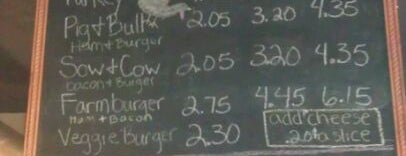 Turkey 4.35
Pig + Bull 2.05 3.20
Ham + Burger
Sow + Cow 2.05 3.20 4.35
bacon + Burger
Farmburger 2.75 4.45 6.15
Ham + Bacon
add cheese
Veggie Burger 2.30
.20 a slice